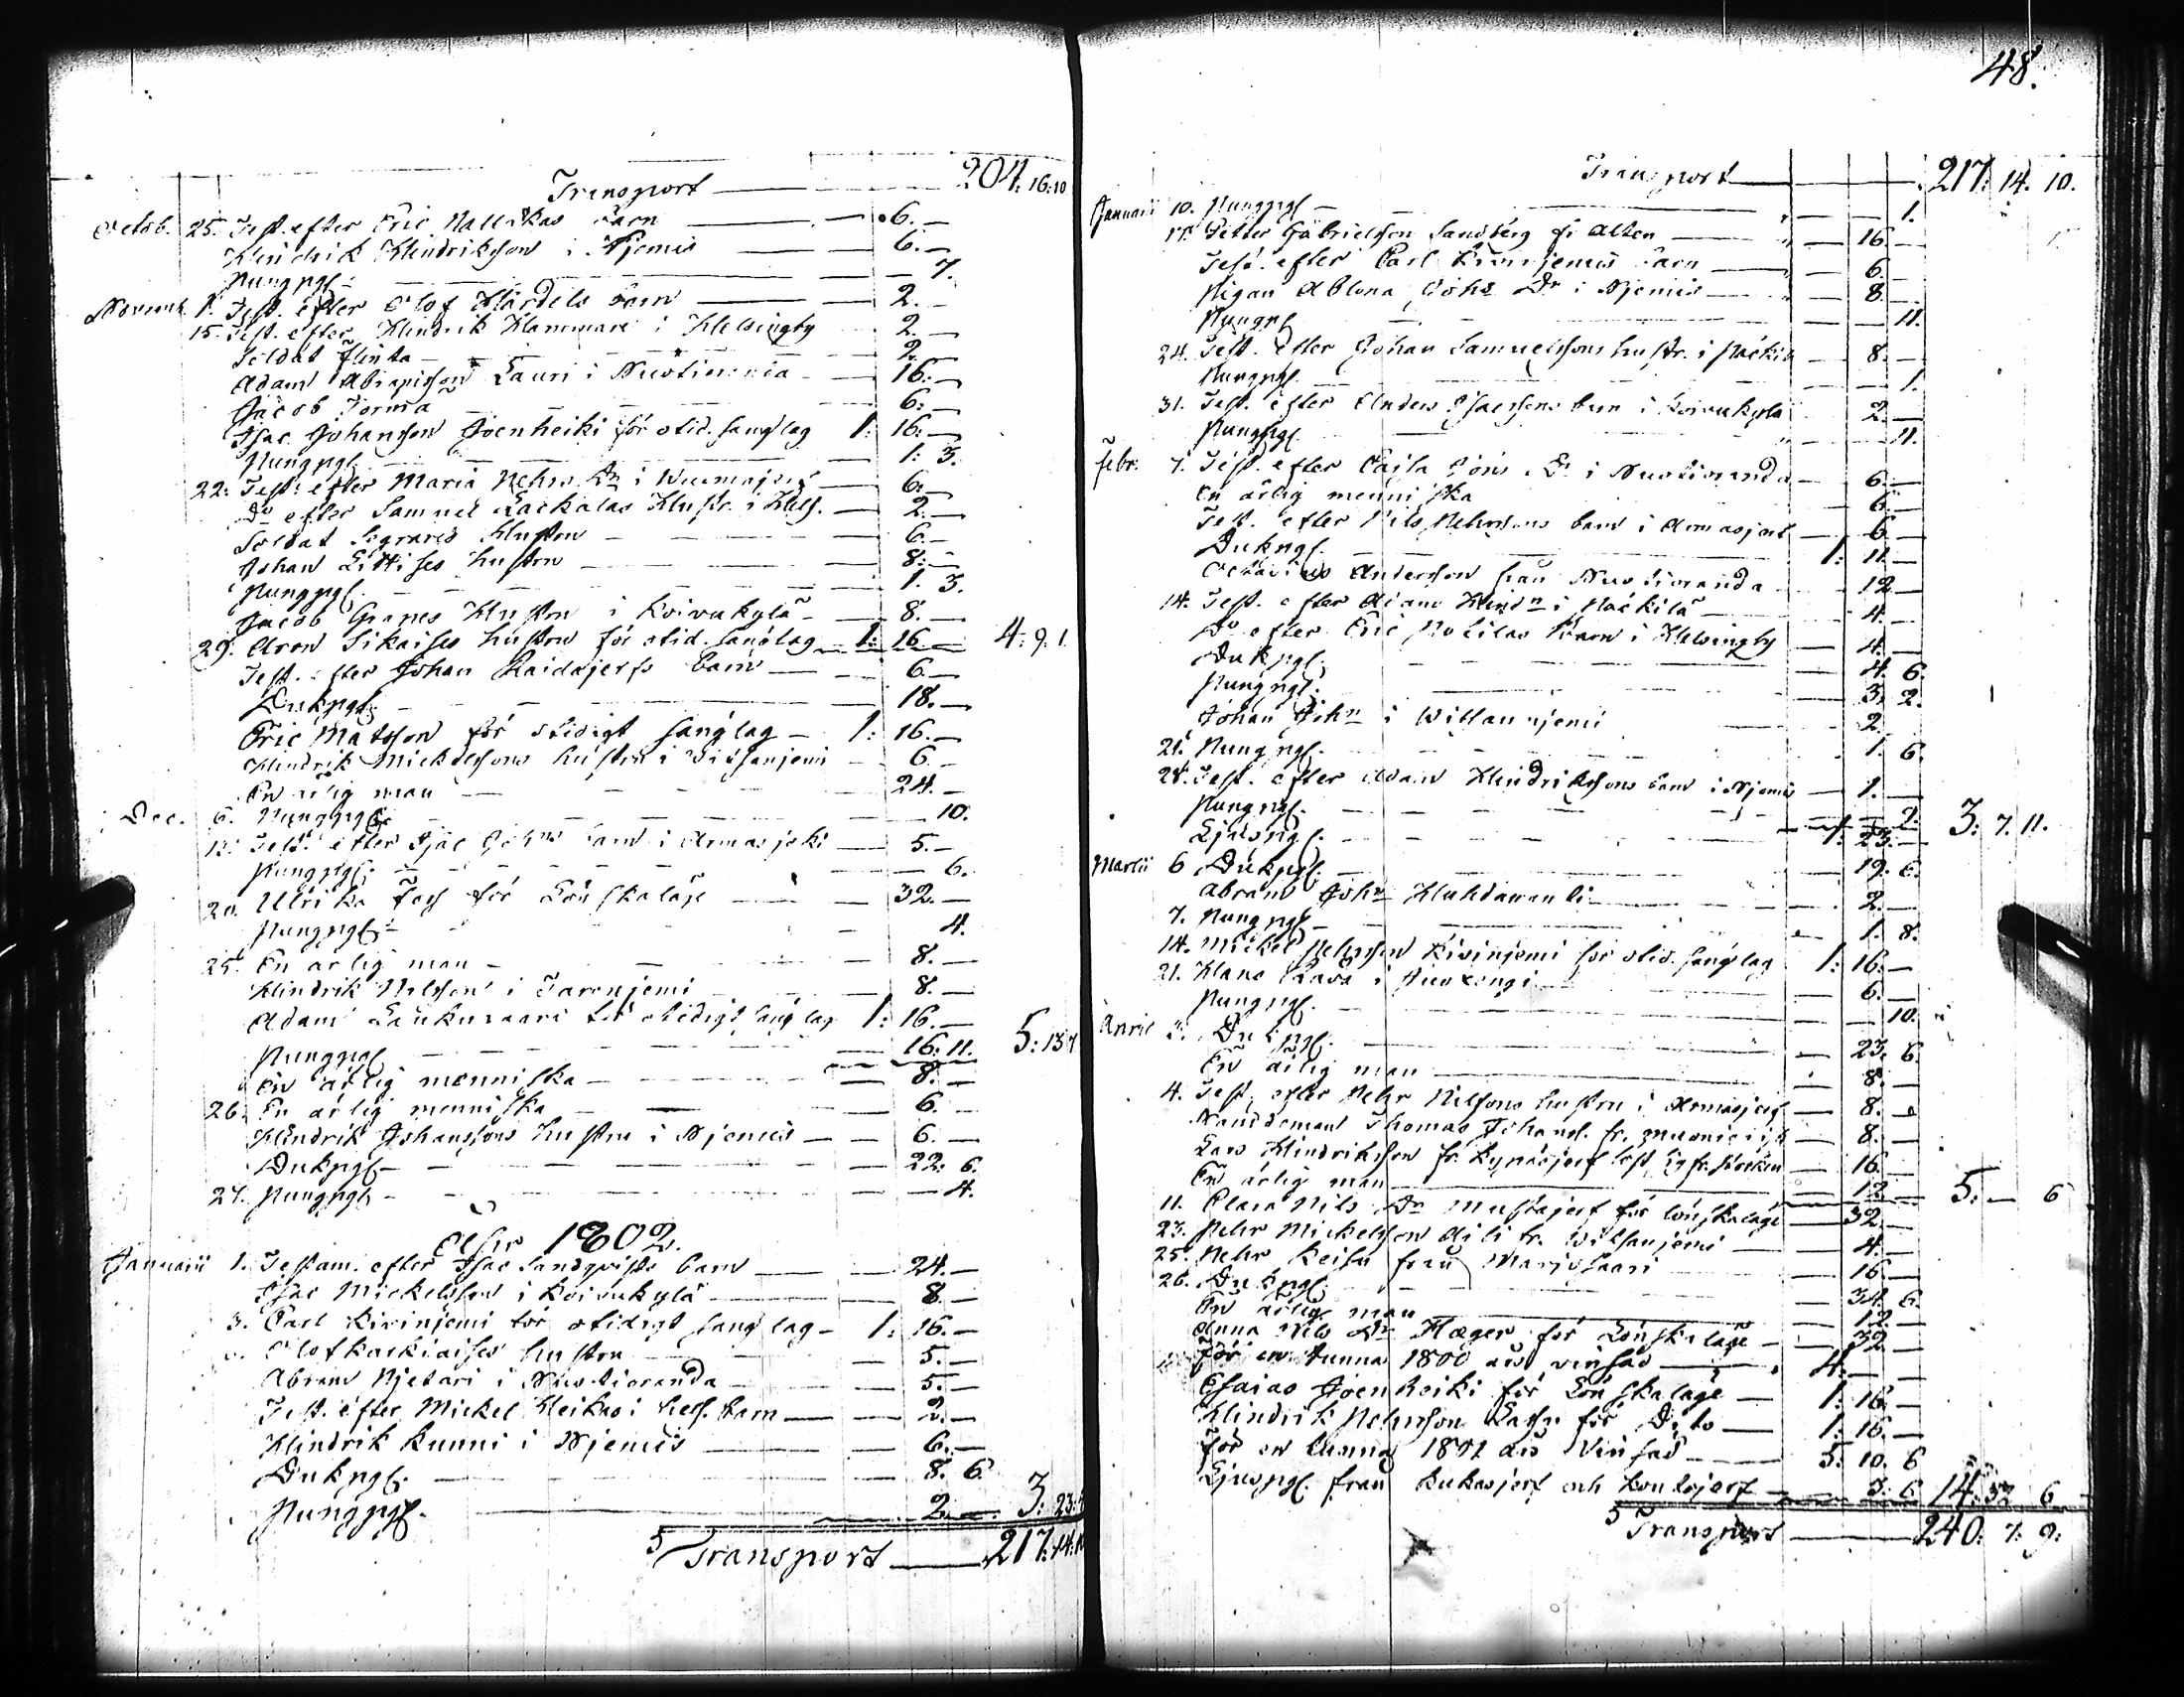 Transport — 204: 16: 10
Octob. 25. Test. efter Eric Nallikas barn — 6. —
Hindrik Hindriksson i Njemis — 6. —
Pungpgr — 7.
Novemb. 1. Test. efter Olof Härdels barn — 2. —
15. Test. efter Hindrik Hannmari i Helsingby — 2. —
Soldat Flinta — 2. —
Adam Lauri i Nuotioranta — 16. —
Jacob Jorma — 6: —
Isac Johansson Joenheiki för otid. sänglag 1: 16: —
Pungpgr — 1: 3.
22. Test: efter Maria Pehrs Dr i — 6: —
Do efter Samuel Lackalas Hustr. i Hels. — 2. —
Soldat Hustru — 6. —
Johan hustru — 8: —
Pungpgr — 1. 3.
Jacob Hustru i Koivukylä — 8. —
29. Aron Sikaises hustru för otid. sänglag 1: 16 — 4: 9. 1.
Test. efter Johan Raidajerfs barn — 6. —
Dukpgr — 18. —
Eric Matsson för otidigt sänglag — 1: 16. —
Hindrik Mickelssons hustru i Vitsanjemi — 6. —
En ärlig man — 24. —
Dec. 6. Pungpgr — 10.
13. Test. efter Isac Johns barn i Armasjoki — 5. —
Pungpgr — 6.
20. Ulrika för Lönskaläge — 32. —
Pungpgr — 4.
25. En ärlig man — 8. —
Hindrik Nilsson i Jarenjemi — 8. —
Adam Laukusaari för otidigt säng lag 1: 16. —
Pungpgr — 16: 11. 5: 13
En ärlig menniska — 8. —
26. En ärlig menniska — 6. —
Hindrik Johanssons hustru i Njemis — 6. —
Dukpgr — 22: 6.
27. Pungpgr — 4.
Åhr 1802.
Januarii 1. Testam. efter Isac Sandqvists barn — 24. —
Isac Mickelsson i Koivukylä — 8. —
3. Carl Kivinjemi för otidigt säng lag — 1: 16. —
Olof Karkiaises hustru — 5. —
Abram Njetari i Nuotioranda — 5. —
Test. efter Mickel Heikas i Hels. barn — 2. —
Hindrik Kunni i Njemis — 6. —
Dukpgr — 8. 6.
Pungpgr. — 2. — 3: 23:
Transport — 217: 14: 10
48.
Transport — 217: 14. 10.
Januarii 10. Pungpgr — 1.
17. Petter Gabrielsson Sandberg fr Alten — 16. —
Test. efter Carl Kivinjemis barn — 6. —
Pigan Johs Dr i Njemis — 8. —
Pungpgr — 11.
24. Test. efter Johan Samuelssons hustr. i Päckilä — 8. —
Pungpgr — 1.
31. Test. efter Anders Isacssons barn i Koivukylä — 2. —
Pungpgr. — 11.
Febr. 7. Test. efter Cajsa Jöns Dr i Nuotioranda — 6. —
En ärlig menniska — 6. —
Test. efter Nils Pehrssons barn i Armasjerf — 6. —
Dukpgr. — 1: 11. —
Octavius Andersson från Nuotioranda — 12. —
14. Test. efter Adam Hindn i Päckilä — 4. —
Do efter Eric barn i Helsingby — 4. —
Dukpgr. — 4. 6.
Pungpgr. — 3. 2.
Johan John i Witsanjemi — 2.
21. Pungpgr. — 1. 6.
28. Test. efter Adam Hindrikssons barn i Njemis — 1. —
Pungpgr. — 9:
Ljuspgr. — 1: 23. — 3: 7. 11.
Martii 6 Dukpgr. — 19. 6.
Abram John — 2. —
7. Pungpgr — 1. 8.
14. Mickel Pehrsson Kivinjemi för otid. sänglag 1: 16. —
21. Hans Rava i Juoxengi — 6. —
Pungpgr. — 10.
April 3. Dukpgr. — 23. 6.
En ärlig man — 8. —
4. Test. efter Pehr Nilssons hustru i Armasjerf — 8. —
Nämdeman Thomas Johans. fr. — 8. —
Lars Hindriksson fr. — 16. —
En ärlig man — 12. — 5: — 6
11. Clara Nils Dr Mustajerf för lönskaläge — 32. —
23. Pehr Mickelsson fr. Witsanjemi — 4. —
25. Pehr Keisu från Marjosaari — 16. —
26. Dukpgr. — 34. 6.
En ärlig man — 12. —
Anna Nils Dr Hæger för Lönskaläge — 32. —
För en tunna 1800 års — 4. —
Esaias Joenheiki för Lönskaläge — 1: 16. —
Hindrik Pehrsson för Dito — 1: 16. —
För en tunna 1801 års — 5: 10. 6
Ljuspgr. från Kukasjerf och — 3: 6 14: 32 6
Transport — 240: 7: 9: